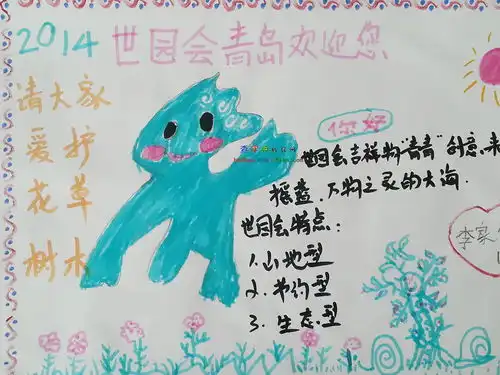 2014 世园会青岛欢迎您
请大家
爱护
花草
树木
你好
世园会吉祥物"青青"创意来
摇篮、万物之灵的大海.
世园会特点:
1.山地型
2.节约型
3.生态型
李家